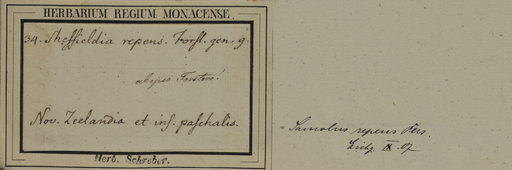 HERBARIUM REGIUM MONACENSE.
34. Sheffieldia repens. Forst. gen. 9.
ab ipso Forstero!
Nov. Zeelandia et ins. paschalis.
Herb. Schreber.
= Samolus repens Pers.
IX. 07